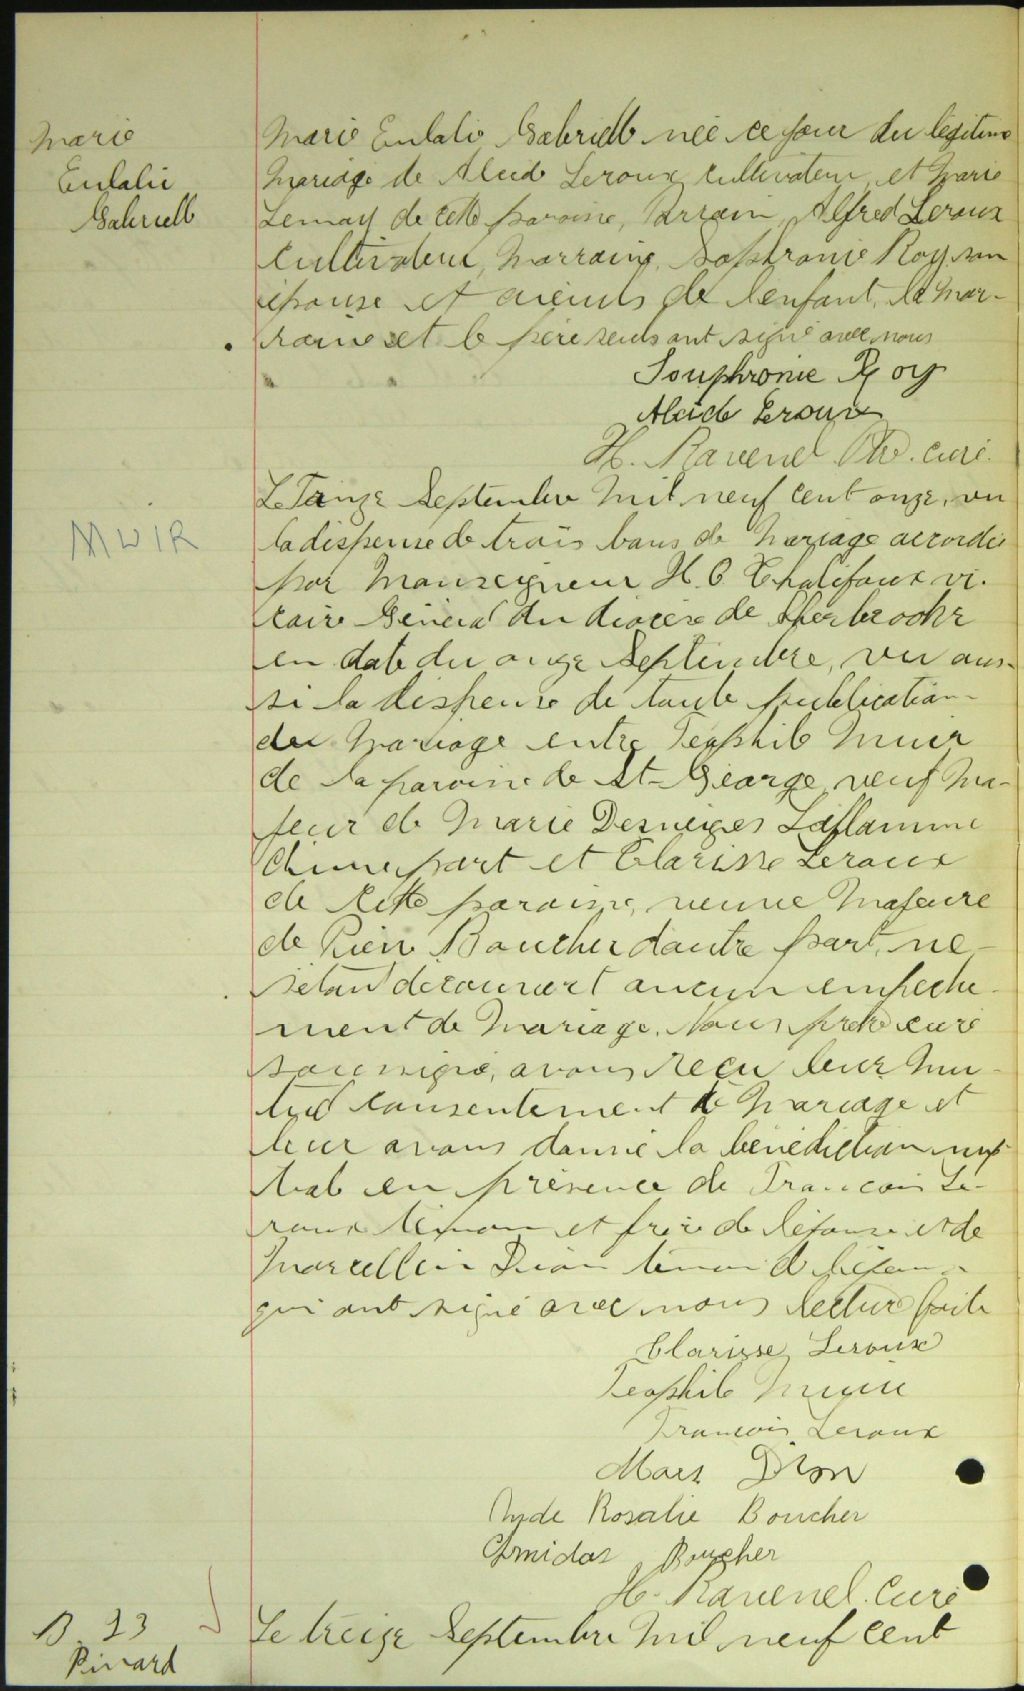 Marie
Eulalie
Gabrielle
Marie Eulalie Gabrielle née ce jour du légitime
Mariage de Alcide Leroux cultivateur et Marie
Lemay de cette paroisse, Parrain Alfred Leroux
cultivateur, Marraine, Sophronie Roy son
épouse et aieuls de l'enfant, la mar-
raine et le père seuls ont signé avec nous
Souphronie Roy
Alcide Leroux
H. Ravenel Ptre. curé.
MUIR
Le Septembre Mil neuf cent onze, vu
la dispense de trois bans de Mariage accordée
par Monseigneur H. O Chalifoux vi-
caire Général du diocèse de Sherbrooke
en date du onze Septembre, vu aus-
si la dispense de toute publication
du Mariage entre Téophile Muir
de la paroisse de St-George, veuf Ma-
jeur de Marie Desneiges Laflamme
d'une part et Clarisse Leroux
de cette paroisse, veuve Majeure
de Boucher d'autre part, ne
s'étant découvert aucun empêche-
ment de Mariage. Nous prêtre curé
soussigné, avons reçu leur Mu-
tuel consentement de Mariage et
leur avons donné la bénédiction nup-
tiale en présence de Francois Le-
roux témoin et frère de l'épouse et de
Marcellin Dion témoin de
qui ont signé avec nous lecture faite
Clarisse Leroux
Téophile Muir
Francois Leroux
Mars Dion
Rosalie Boucher
Boucher
H. Ravenel. Curé
B 23
Pinard
Le treize Septembre Mil neuf cent